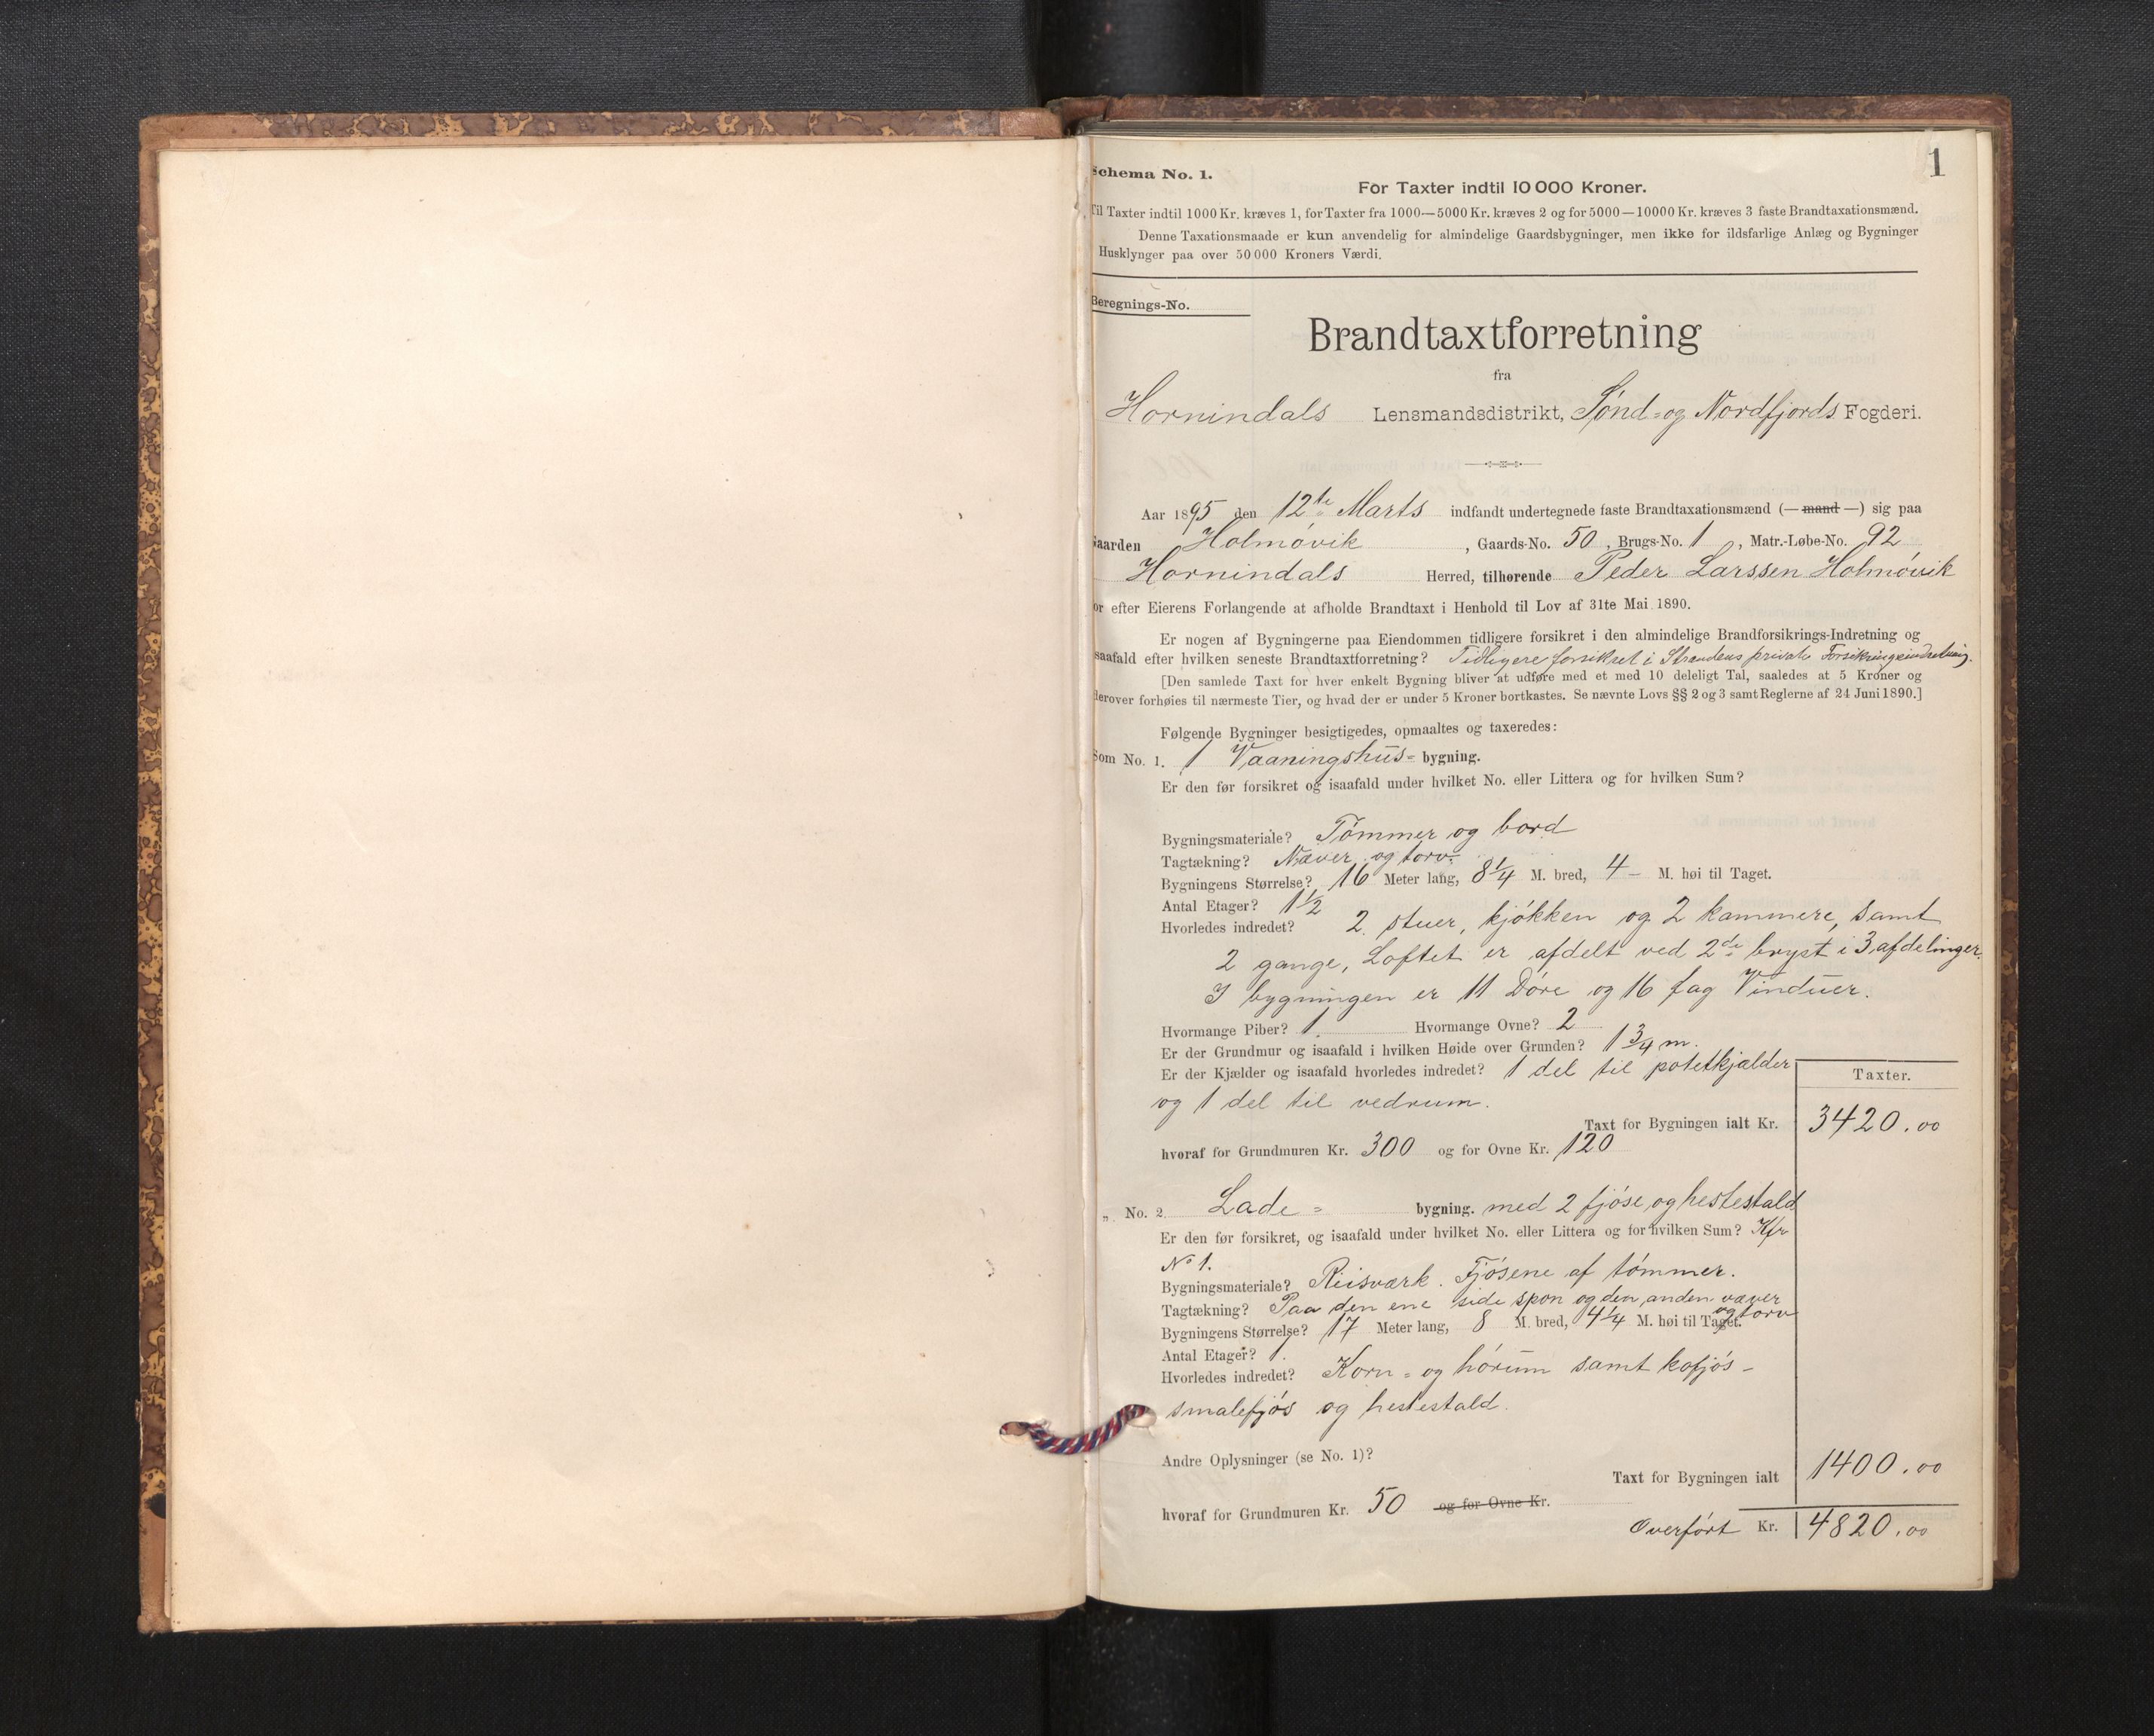 1
Schema No. 1.
For Taxter indtil 10 000 Kroner.
Til Taxter indtil 1000 Kr. kræves 1, for Taxter fra 1000—5000 Kr. kræves 2 og for 5000—10000 Kr. kræves 3 faste Brandtaxationsmænd.
Denne Taxationsmaade er kun anvendelig for almindelige Gaardsbygninger, men ikke for ildsfarlige Anlæg og Bygninger
Husklynger paa over 50 000 Kroners Værdi.
Beregnings-No.
Brandtaxtforretning
fra
Hornindals Lensmandsdistrikt, Sønd- og Nordfjords Fogderi.
Aar 1895 den 12te Marts indfandt undertegnede faste Brandtaxationsmænd (— mand —) sig paa
Gaarden Holmøvik, Gaards-No. 50, Brugs-No. 1, Matr.-Løbe-No. 92
Hornindals Herred, tilhørende Peder Larssen Holmøvik
or efter Eierens Forlangende at afholde Brandtaxt i Henhold til Lov af 31te Mai 1890.
Er nogen af Bygningerne paa Eiendommen tidligere forsikret i den almindelige Brandforsikrings-Indretning og
saafald efter hvilken seneste Brandtaxtforretning? Tidligere forsikret i Strandens private Forsikringsindretning.
[Den samlede Taxt for hver enkelt Bygning bliver at udføre med et med 10 deleligt Tal, saaledes at 5 Kroner og
derover forhøies til nærmeste Tier, og hvad der er under 5 Kroner bortkastes. Se nævnte Lovs §§ 2 og 3 samt Reglerne af 24 Juni 1890.]
Følgende Bygninger besigtigedes, opmaaltes og taxeredes:
Som No. 1. 1 Vaaningshus- bygning.
Er den før forsikret og isaafald under hvilket No. eller Littera og for hvilken Sum?
Bygningsmateriale? Tømmer og bord
Tagtækning? Næver og torv.
Bygningens Størrelse? 16 Meter lang, 8 1/4 M. bred, 4 — M. høi til Taget.
Antal Etager? 1 1/2
Hvorledes indredet? 2 stuer, kjøkken og 2 kammere, samt
2 gange, Loftet er afdelt ved 2de bryst i 3 afdelinger.
I bygningen er 11 Døre og 16 fag Vinduer.
Hvormange Piber? 1. Hvormange Ovne? 2
Er der Grundmur og isaafald i hvilken Høide over Grunden? 1 3/4 m.
Er der Kjælder og isaafald hvorledes indredet? 1 del til potetkjælder
og 1 del til vedrum.
Taxter.
Taxt for Bygningen ialt Kr. 3420.00
hvoraf for Grundmuren Kr. 300 og for Ovne Kr. 120
„ No. 2. Lade- bygning. med 2 fjøse og hestestald
Er den før forsikret, og isaafald under hvilket No. eller Littera og for hvilken Sum? Kfr
No 1.
Bygningsmateriale? Reisværk. Fjøsene af tømmer.
Tagtækning? Paa den ene side spon og den anden næver
og torv
Bygningens Størrelse? 17 Meter lang, 8 M. bred, 4 1/4 M. høi til Taget.
Antal Etager? 1.
Hvorledes indredet? Korn- og hørum samt kofjøs-
smalefjøs og hestestald.
Andre Oplysninger (se No. 1)?
Taxt for Bygningen ialt 1400.00
hvoraf for Grundmuren Kr. 50 og for Ovne Kr.
Overført Kr. 4820.00